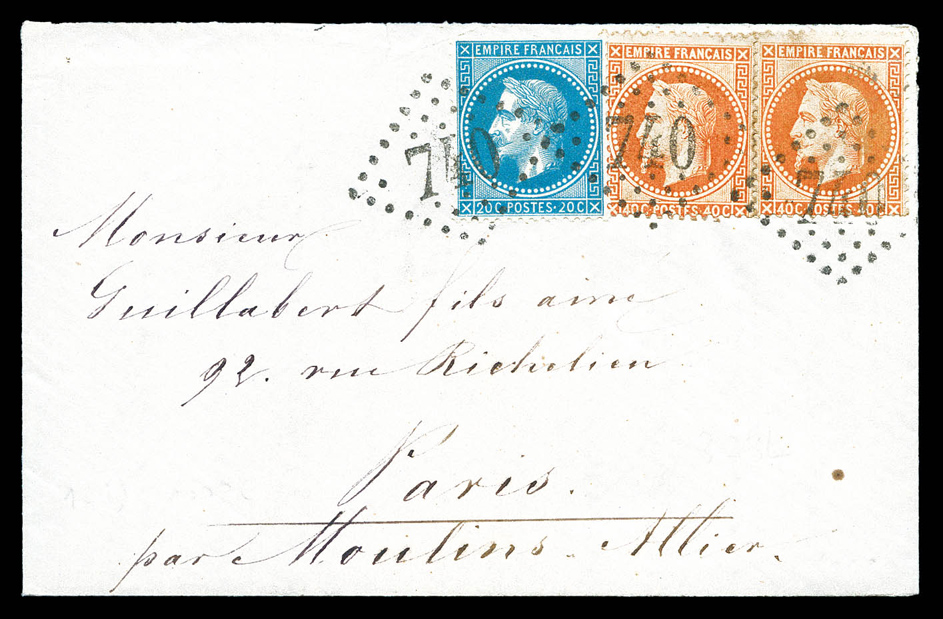 EMPIRE FRANÇAIS EMPIRE FRANÇAIS EMPIRE FRANÇAIS
740 740 740
20C POSTES 20C 40C POSTES 40C 40C POSTES 40C
Monsieur
Guillabert fils aine
92. rue Richelieu
Paris.
par Moulins - Allier.